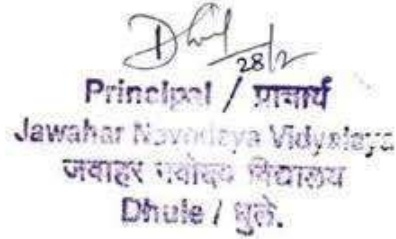 28/2
Principal / प्राचार्य
Jawahar Navodaya Vidyalaya
जवाहर नवोदय विद्यालय
Dhule / धुले.